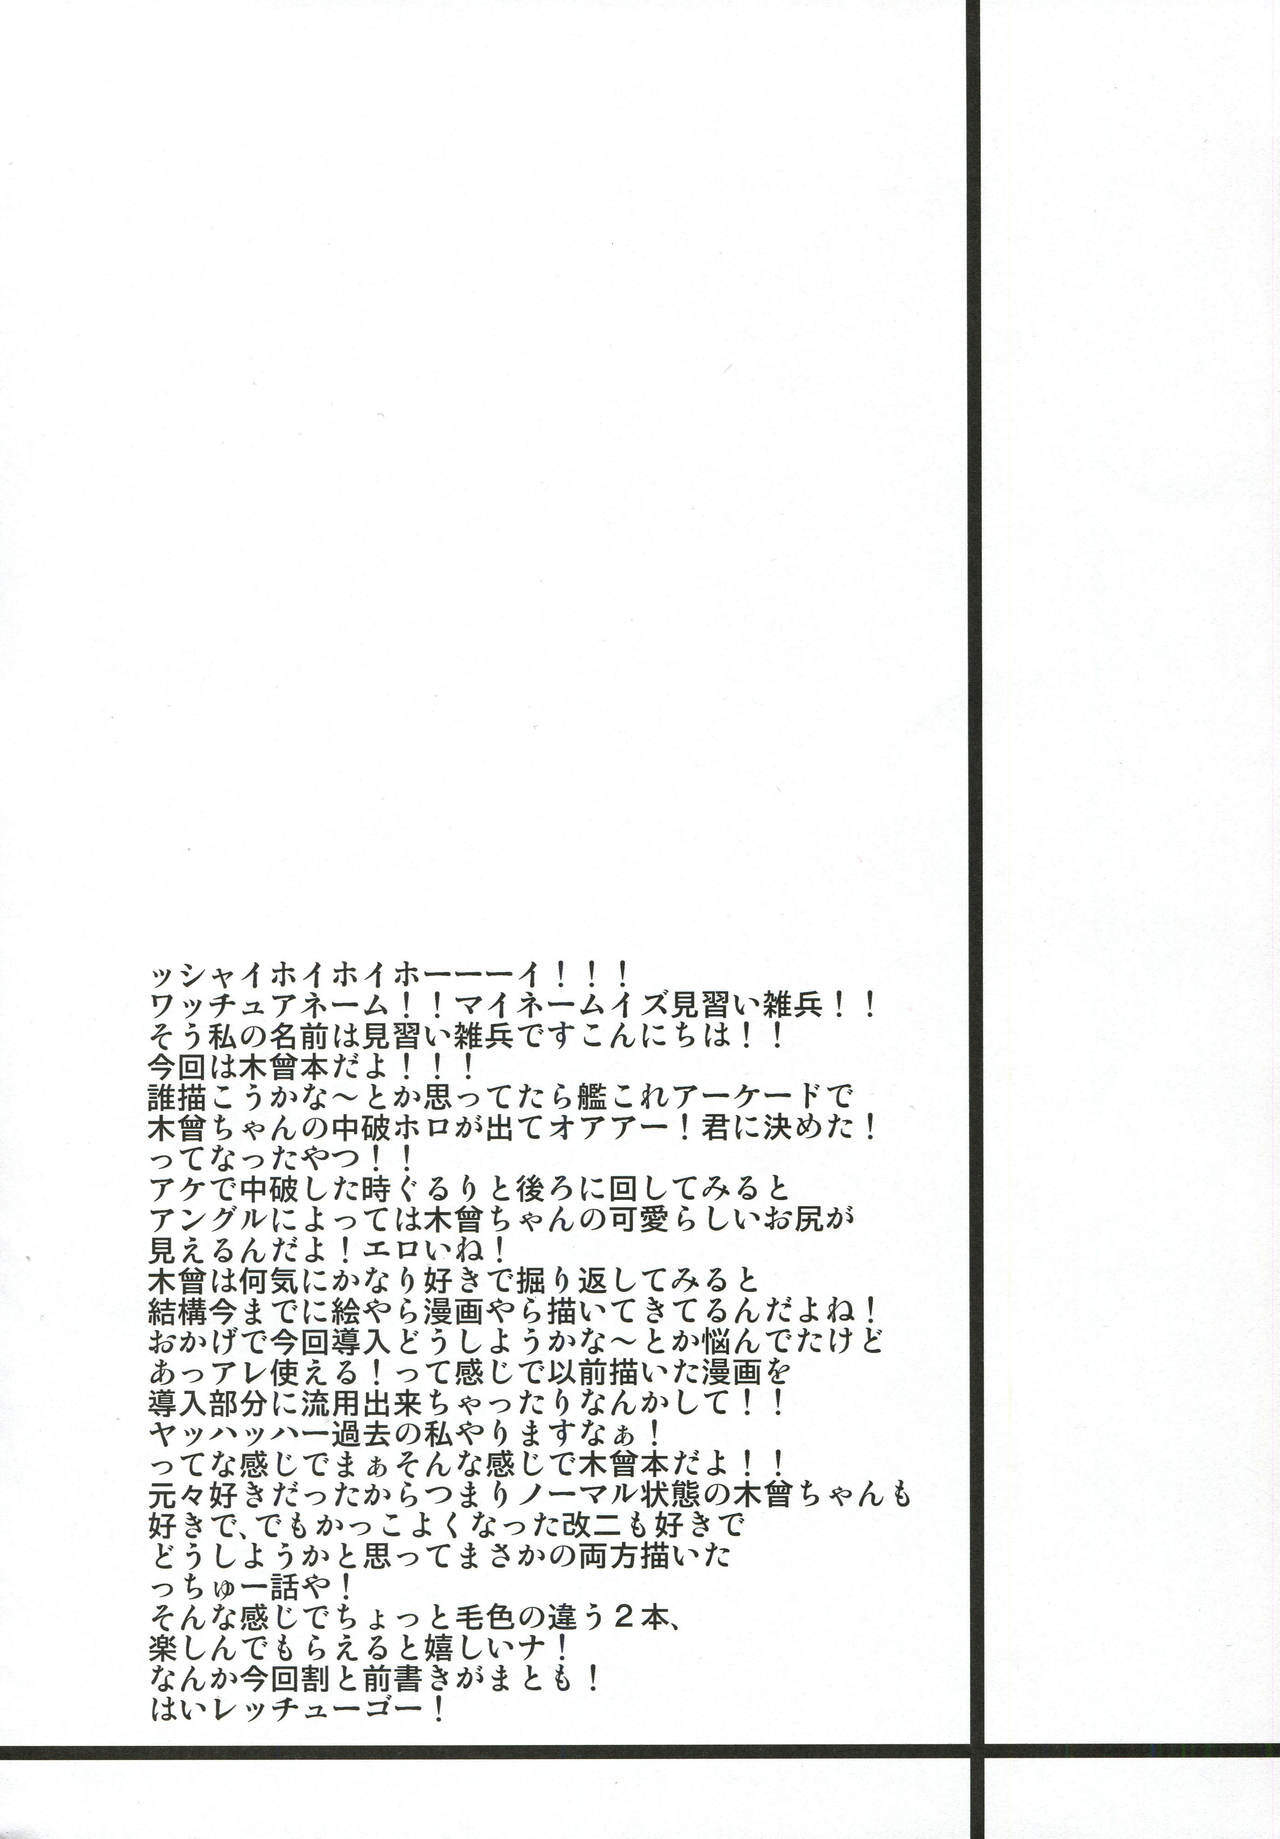 ッシャイホイホイホーーーイ！！！
ワッチュアネーム！！マイネームイズ見習い雑兵！！
そう私の名前は見習い雑兵ですこんにちは！！
今回は木曾本だよ！！！
誰描こうかな～とか思ってたら艦これアーケードで
木曾ちゃんの中破ホロが出てオアアー！君に決めた！
ってなったやつ！！
アケで中破した時ぐるりと後ろに回してみると
アングルによっては木曾ちゃんの可愛らしいお尻が
見えるんだよ！エロいね！
木曾は何気にかなり好きで掘り返してみると
結構今までに絵やら漫画やら描いてきてるんだよね！
おかげで今回導入どうしようかな～とか悩んでたけど
あっアレ使える！って感じで以前描いた漫画を
導入部分に流用出来ちゃったりなんかして！！
ヤッハッハー過去の私やりますなぁ！
ってな感じでまぁそんな感じで木曾本だよ！！
元々好きだったからつまりノーマル状態の木曾ちゃんも
好きで、でもかっこよくなった改二も好きで
どうしようかと思ってまさかの両方描いた
っちゅー話や！
そんな感じでちょっと毛色の違う２本、
楽しんでもらえると嬉しいナ！
なんか今回割と前書きがまとも！
はいレッチューゴー！